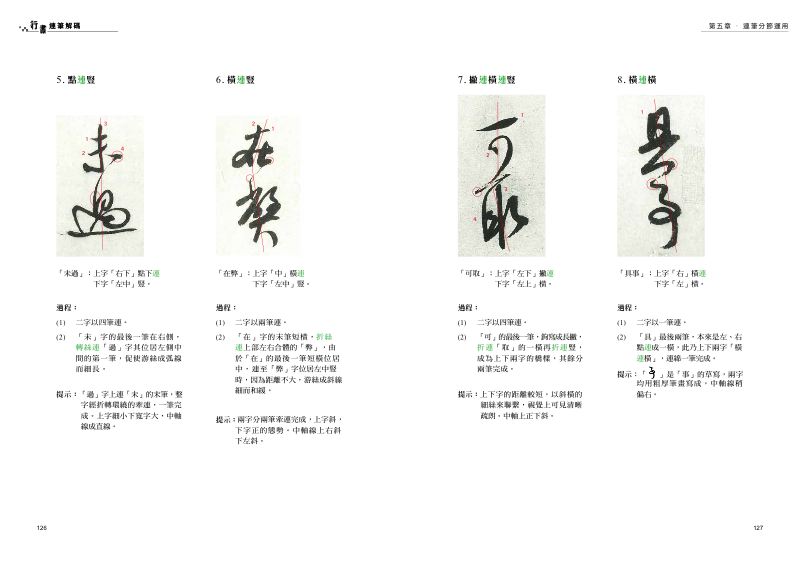 行書 連筆解碼
第五章 · 連筆分節運用
5. 點連豎
未過
1
2
3
4
「未過」：上字「右下」點下連
下字「左中」豎。
過程：
(1) 二字以四筆連。
(2) 「未」字的最後一筆在右側，
轉絲連「過」字其位居左側中
間的第一筆，促使游絲成弧線
而細長。
提示：「過」字上連「未」的末筆，整
字經折轉環繞的牽連，一筆完
成。上字細小下寬字大，中軸
線成直線。
6. 橫連豎
在弊
1
2
「在弊」：上字「中」橫連
下字「左中」豎。
過程：
(1) 二字以兩筆連。
(2) 「在」字的末筆短橫，折絲
連上部左右合體的「弊」，由
於「在」的最後一筆短橫位居
中，連至「弊」字位居左中豎
時，因為距離不大，游絲成斜線
細而和緩。
提示：兩字分兩筆牽連完成，上字斜，
下字正的態勢，中軸線上右斜
下左斜。
7. 撇連橫連豎
可取
1
2
3
4
「可取」：上字「左下」撇連
下字「左上」橫。
過程：
(1) 二字以四筆連。
(2) 「可」的最後一筆，鉤寫成長撇，
折連「取」的一橫再折連豎，
成為上下兩字的橋樑，其餘分
兩筆完成。
提示：上下字的距離較短，以斜橫的
細絲來聯繫，視覺上可見清晰
疏朗。中軸上正下斜。
8. 橫連橫
具事
1
「具事」：上字「右」橫連
下字「左」橫。
過程：
(1) 二字以一筆連。
(2) 「具」最後兩筆，本來是左、右
點連成一橫，此乃上下兩字「橫
連橫」，連綿一筆完成。
提示：「」是「事」的草寫，兩字
均用粗厚筆畫寫成，中軸線稍
偏右。
126
127